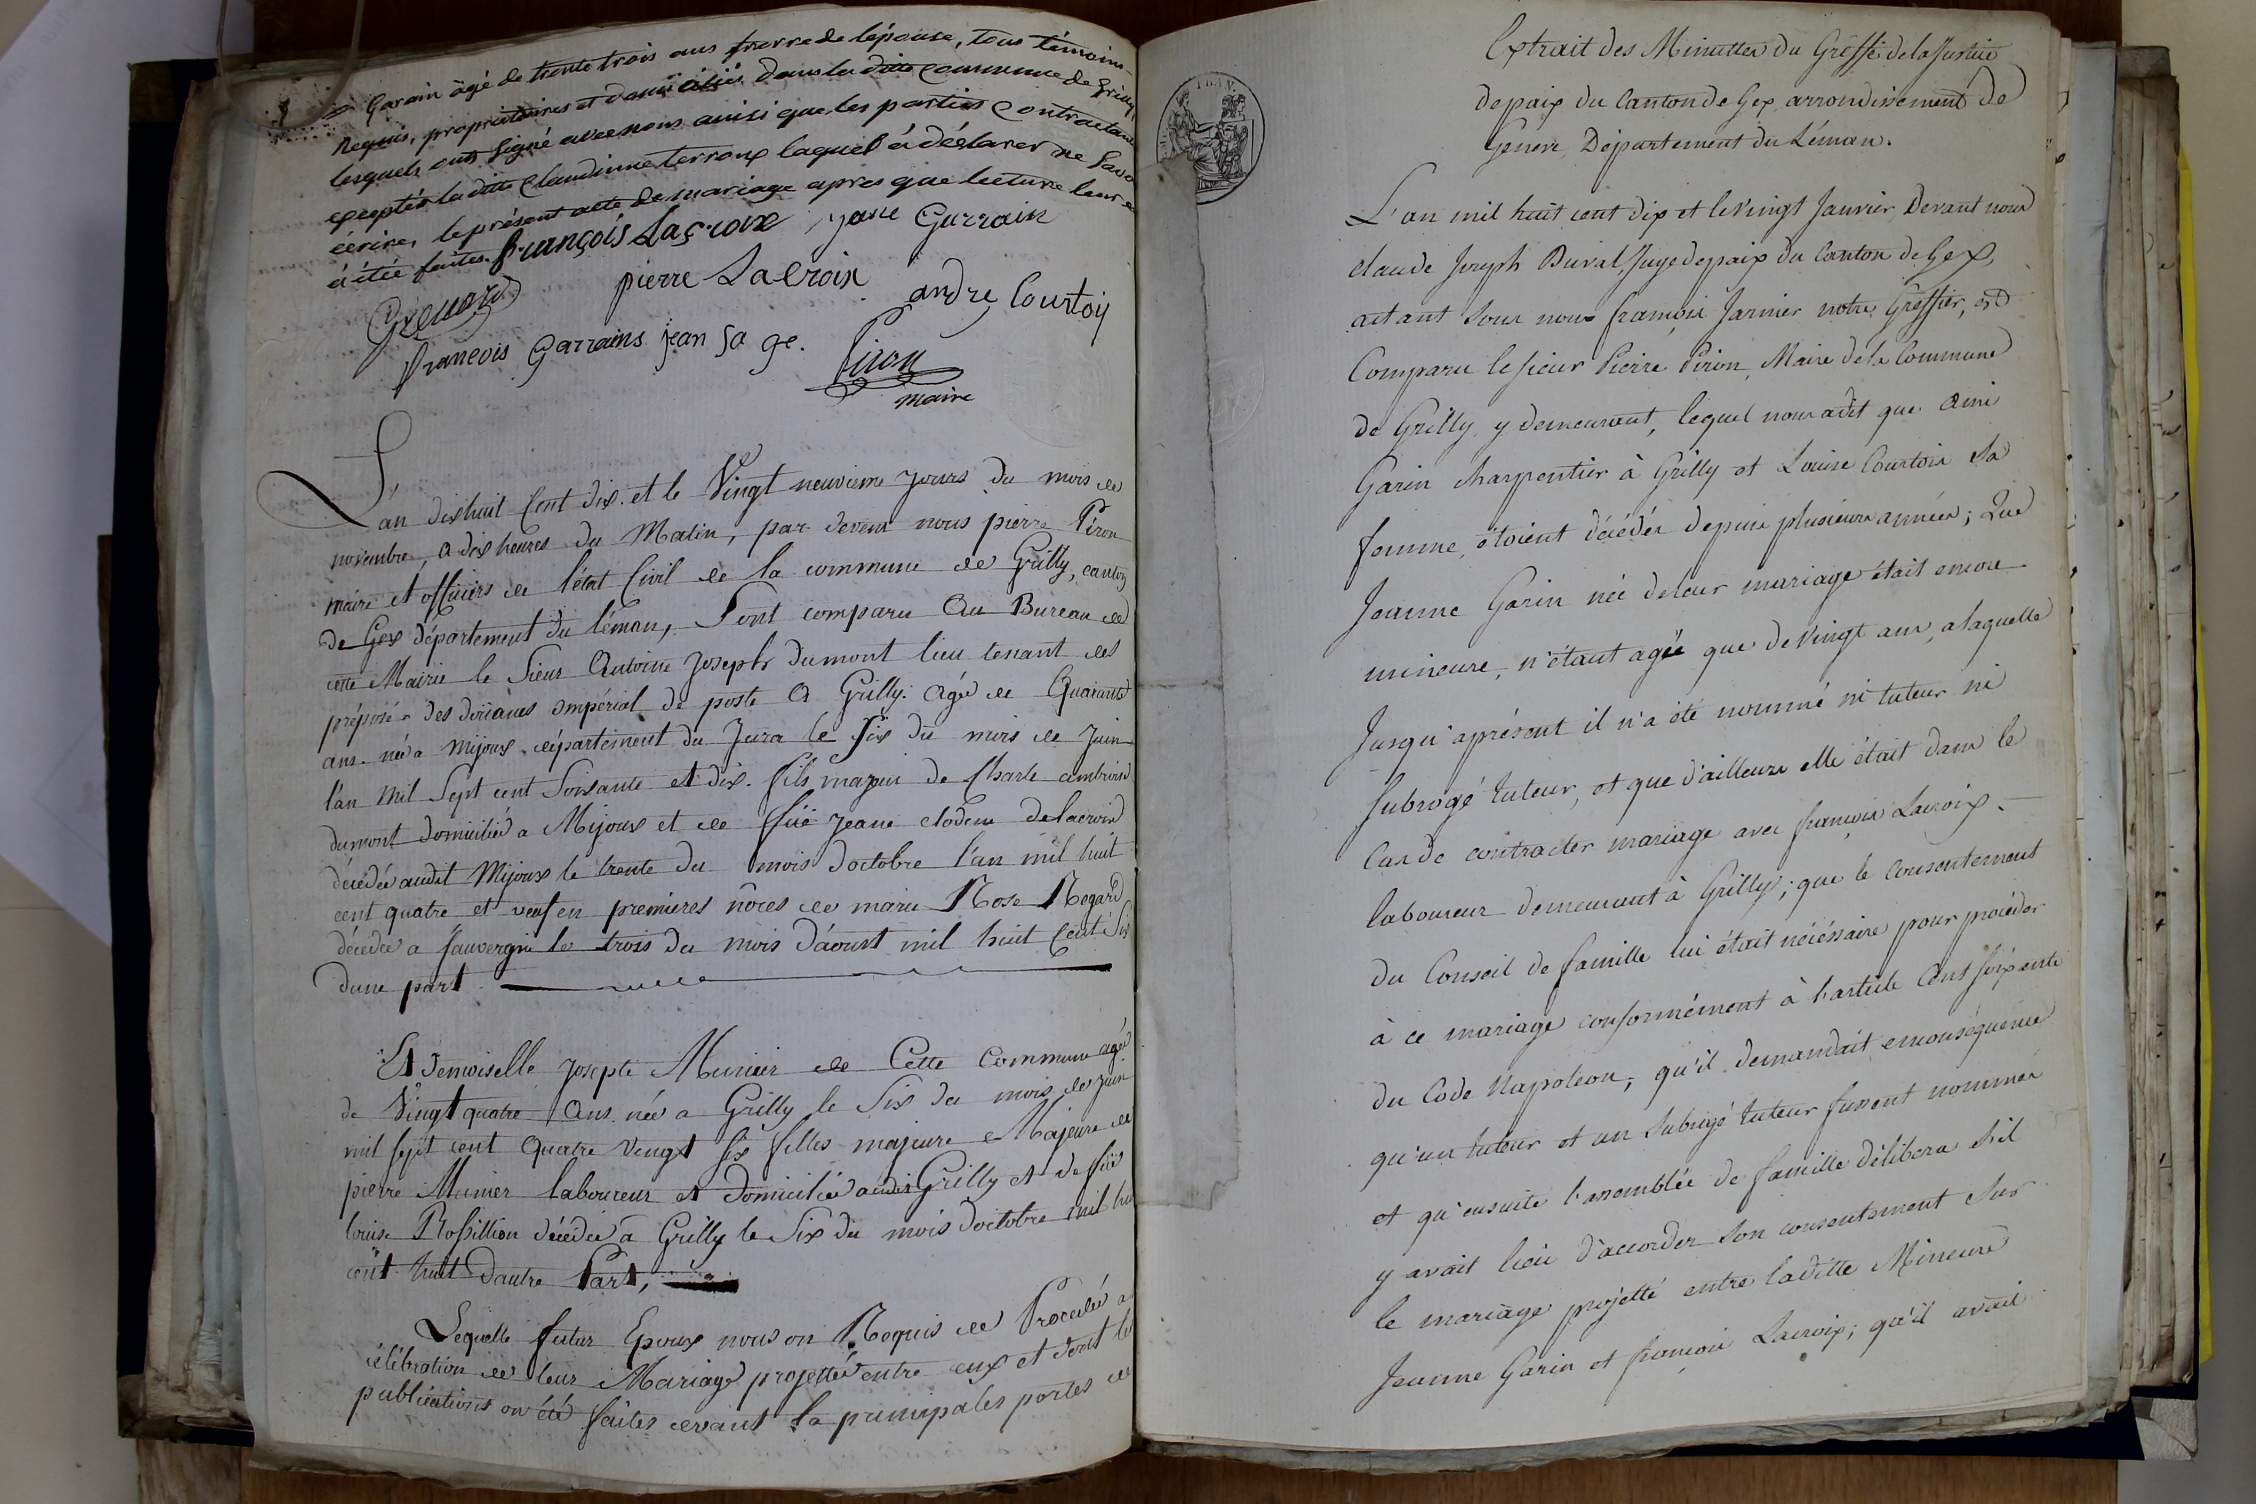 Garain âgé de trente trois ans frerre de l'épouse, tous témoins
Requis, propriétaires et domiciliés dans la ditte Commune de Grilly,
lesquels ont signé avec nous ainsi que les parties Contractant
exceptés la ditte Claudinne terroux laquel à déclarer ne Savo
écrire, le présent acte de mariage apres que lecture leur
à étée faites. françois Lacroix jane Garrain
pierre Lacroix andre Courtois
Grenard
francois Garrains jean sage.
Piron
maire
L'an dixhuit Cent dix. et le Vingt neuvieme Jours du mois de
novembre, a dix heures du Matin, par devent nous pierre Piron
maire et officiers de l'état Civil de la commune de Grilly, canton
de Gex département du léman, Sont comparu Au Bureau de
cette Mairie le Sieur Antoine Joseph dumont lieu tenant des
préposé des doüanes impérial de poste a Grilly. agé de Quarante
ans. né a Mijoux. département du Jura le Six du mois de Juin
l'an Mil Sept cent Soixante et dix. fils majeur de Charle ambroise
dumont domicilié a Mijoux et de füe Jeane clodine delacroix
décédée audit Mijoux le trente du mois doctobre l'an mil huit
cent quatre et veuf en premieres nôces de marie Rose Regard
décédée a Sauvergni le trois du mois d'aoust mil huit Cent Six
dune part.
Et Demoiselle Josepte Munier de Cette Commune agée
de Vingt quatre Ans née a Grilly le Six du mois de Juin
mil Sept cent Quatre Vingt Six filles majeure Majeure de
pierre Munier laboureur et domicilié audit Grilly et de füe
louise Rossillion décédée a Grilly le Six du mois doctobre mil hu
cent huit dautre Part,
Lequelle futur Epoux nous on Requis de Procedée a
célébration de leur Mariage projettée entre eux et dont les
publications on été faites devant la principales portes de
Extrait des Minuttes du Greffe de la Justice
de paix du Canton de Gex, arrondissement de
Genève, Département du Léman.
L'an mil huit cent dix et le vingt Janvier, Devant nous
claude Joseph Duval, Juge de paix du Canton de Gex,
aitant sous nous françois Jarnier notre Greffier, est
Comparu le sieur Pierre Piron, Maire de la Commune
de Grilly y demeurant, lequel nous a dit que Aimé
Garin charpentier à Grilly et Louise Courtois sa
femme, étoient décédés depuis plusieurs années; Que
Jeanne Garin née de leur mariage était encore
mineure, n'étant agée que de vingt ans, a laquelle
Jusqu'aprésent il n'a été nommé ni tuteur ni
subrogé tuteur, et que d'ailleurs elle était dans le
Cas de contracter mariage avec françois Lacroix
laboureur demeurant à Grilly; que le Consentement
du Conseil de famille lui était nécéssaire pour procéder
à ce mariage conformément à l'article Cent soixante
du Code Napoleon; qu'il demandait enconséquence
qu'un tuteur et un subrogé tuteur fussent nommés
et qu'ensuite l'assemblée de famille délibera s'il
y avait lieu d'accorder son consentement sur
le mariage projetté entre laditte Mineure
Jeanne Garin et françois Lacroix; qu'il avait